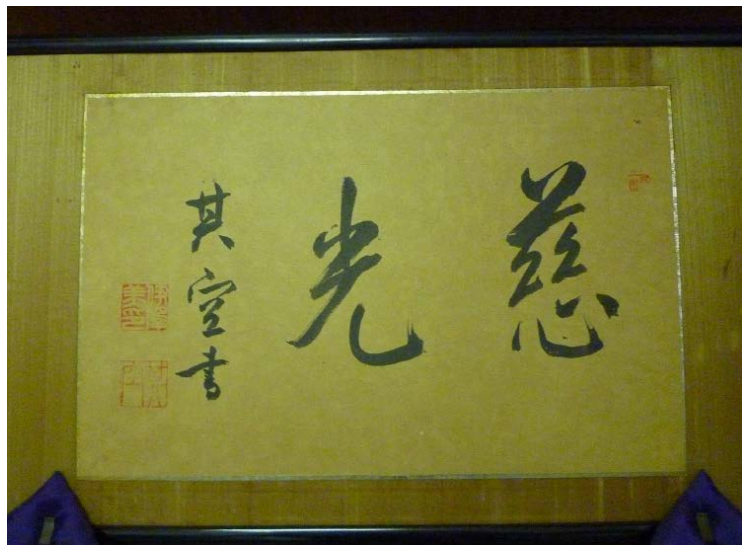 慈光
其空書